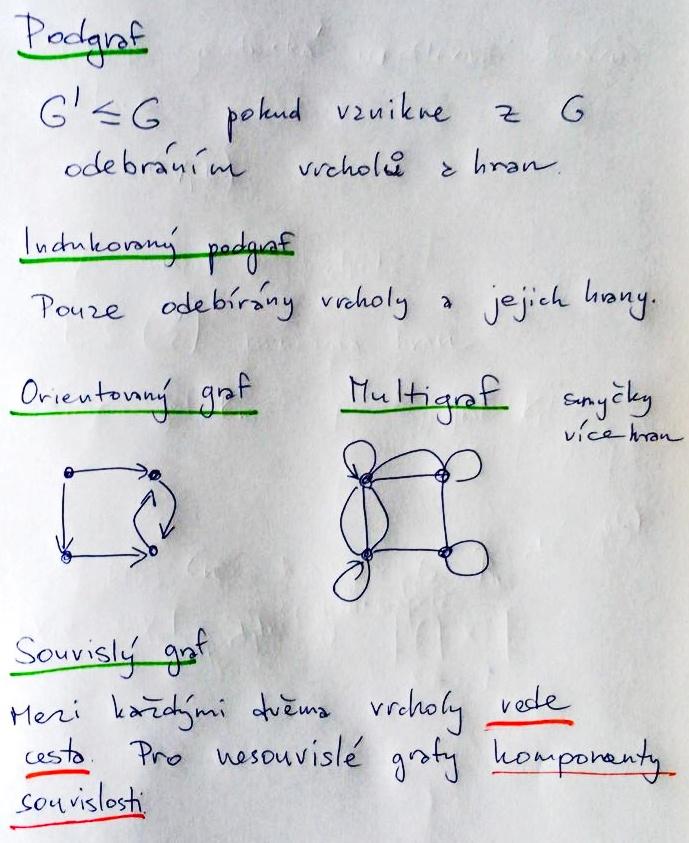 Podgraf
G' ≤ G pokud vznikne z G
odebráním vrcholů a hran.
Indukovaný podgraf
Pouze odebírány vrcholy a jejich hrany.
Orientovaný graf
Multigraf
smyčky
více hran
Souvislý graf
Mezi každými dvěma vrcholy vede
cesta. Pro nesouvislé grafy komponenty
souvislosti